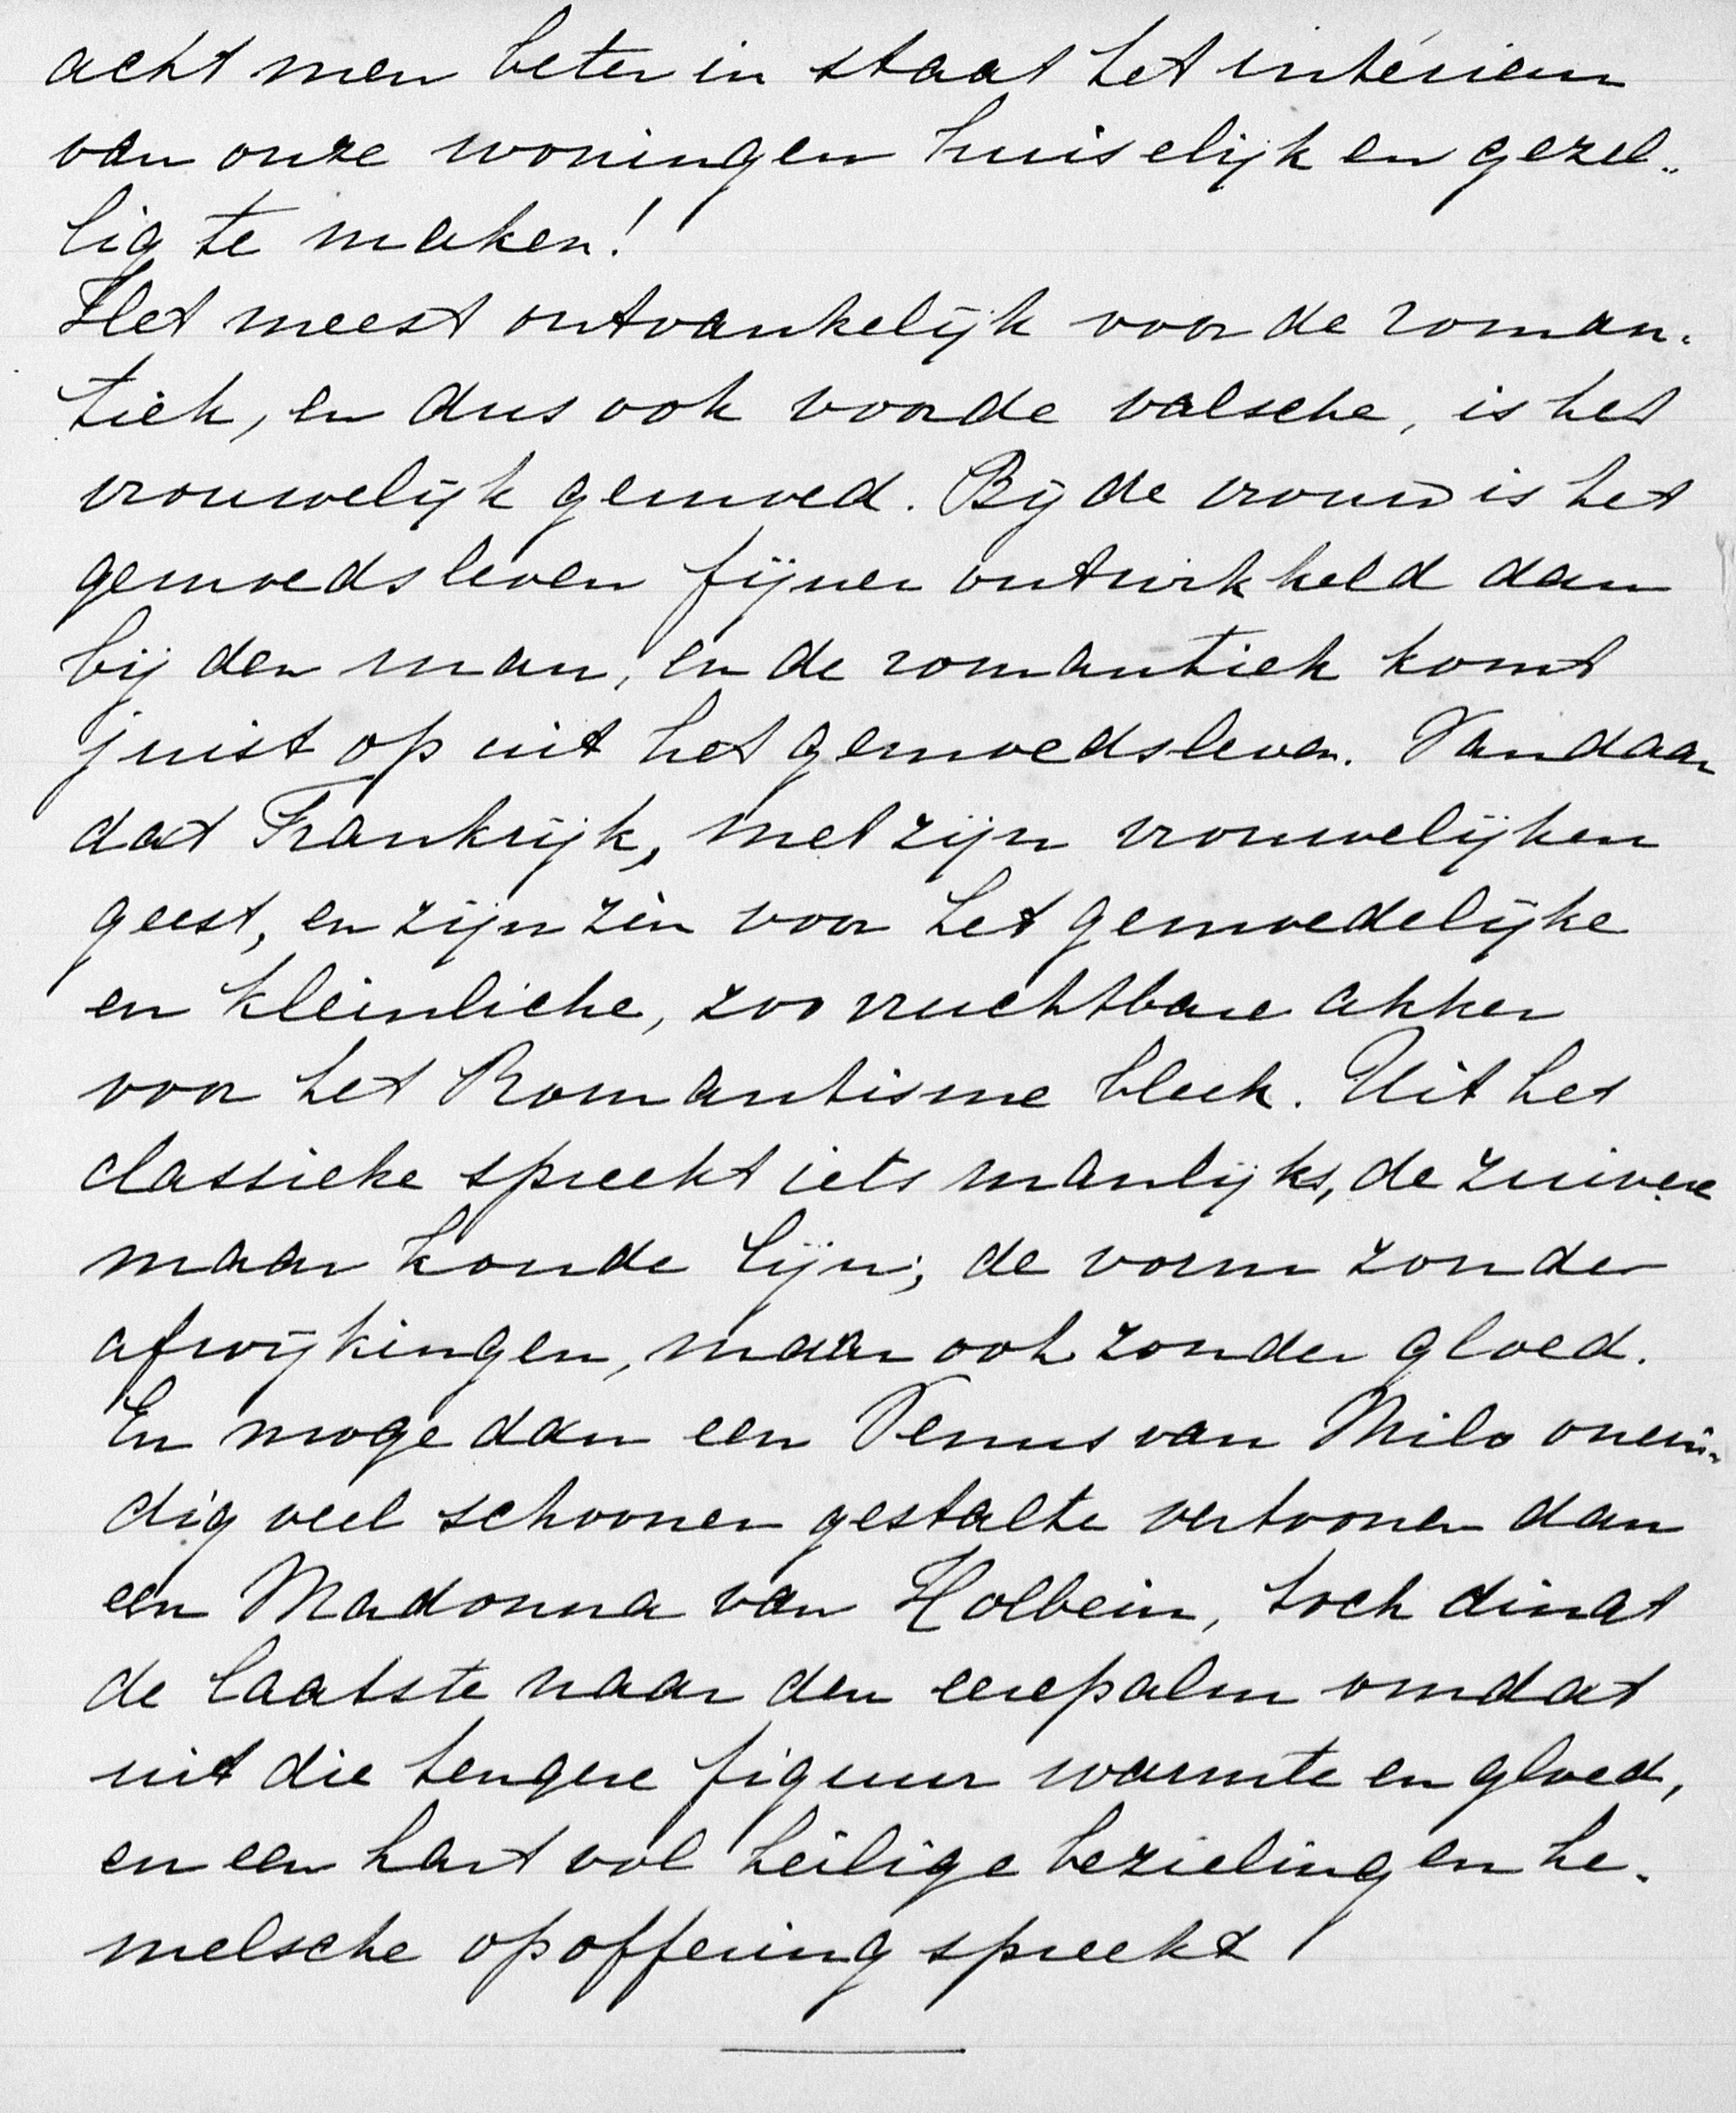 acht men beter in staat het intérieur
van onze woningen huiselijk en gezel-
lig te maken!
Het meest ontvankelijk voor de roman-
tiek, en dus ook voor de valsche, is het
vrouwelijk gemoed. Bij de vrouw is het
gemoedsleven fijner ontwikkeld dan
bij den man, en de romantiek komt
juist op uit het gemoedsleven. Vandaar
dat Frankrijk, met zijn vrouwelijken
geest, en zijn zin voor het gemoedelijke
en kleinlicke, zoo vruchtbare akker
voor het Romantisme bleek. Uit het
classieke spreekt iets manlijks, de zuivere
maar koude lijn; de vorm zonder
afwijkingen, maar ook zonder gloed.
En moge dan een Venus van Milo onein-
dig veel schooner gestalte vertoonen dan
een Madonna van Holbein, toch dingt
de laatste naar den eerepalm omdat
uit die tengere figuur warmte en gloed,
en een hart vol heilige bezieling en he-
melsche opoffering spreekt!